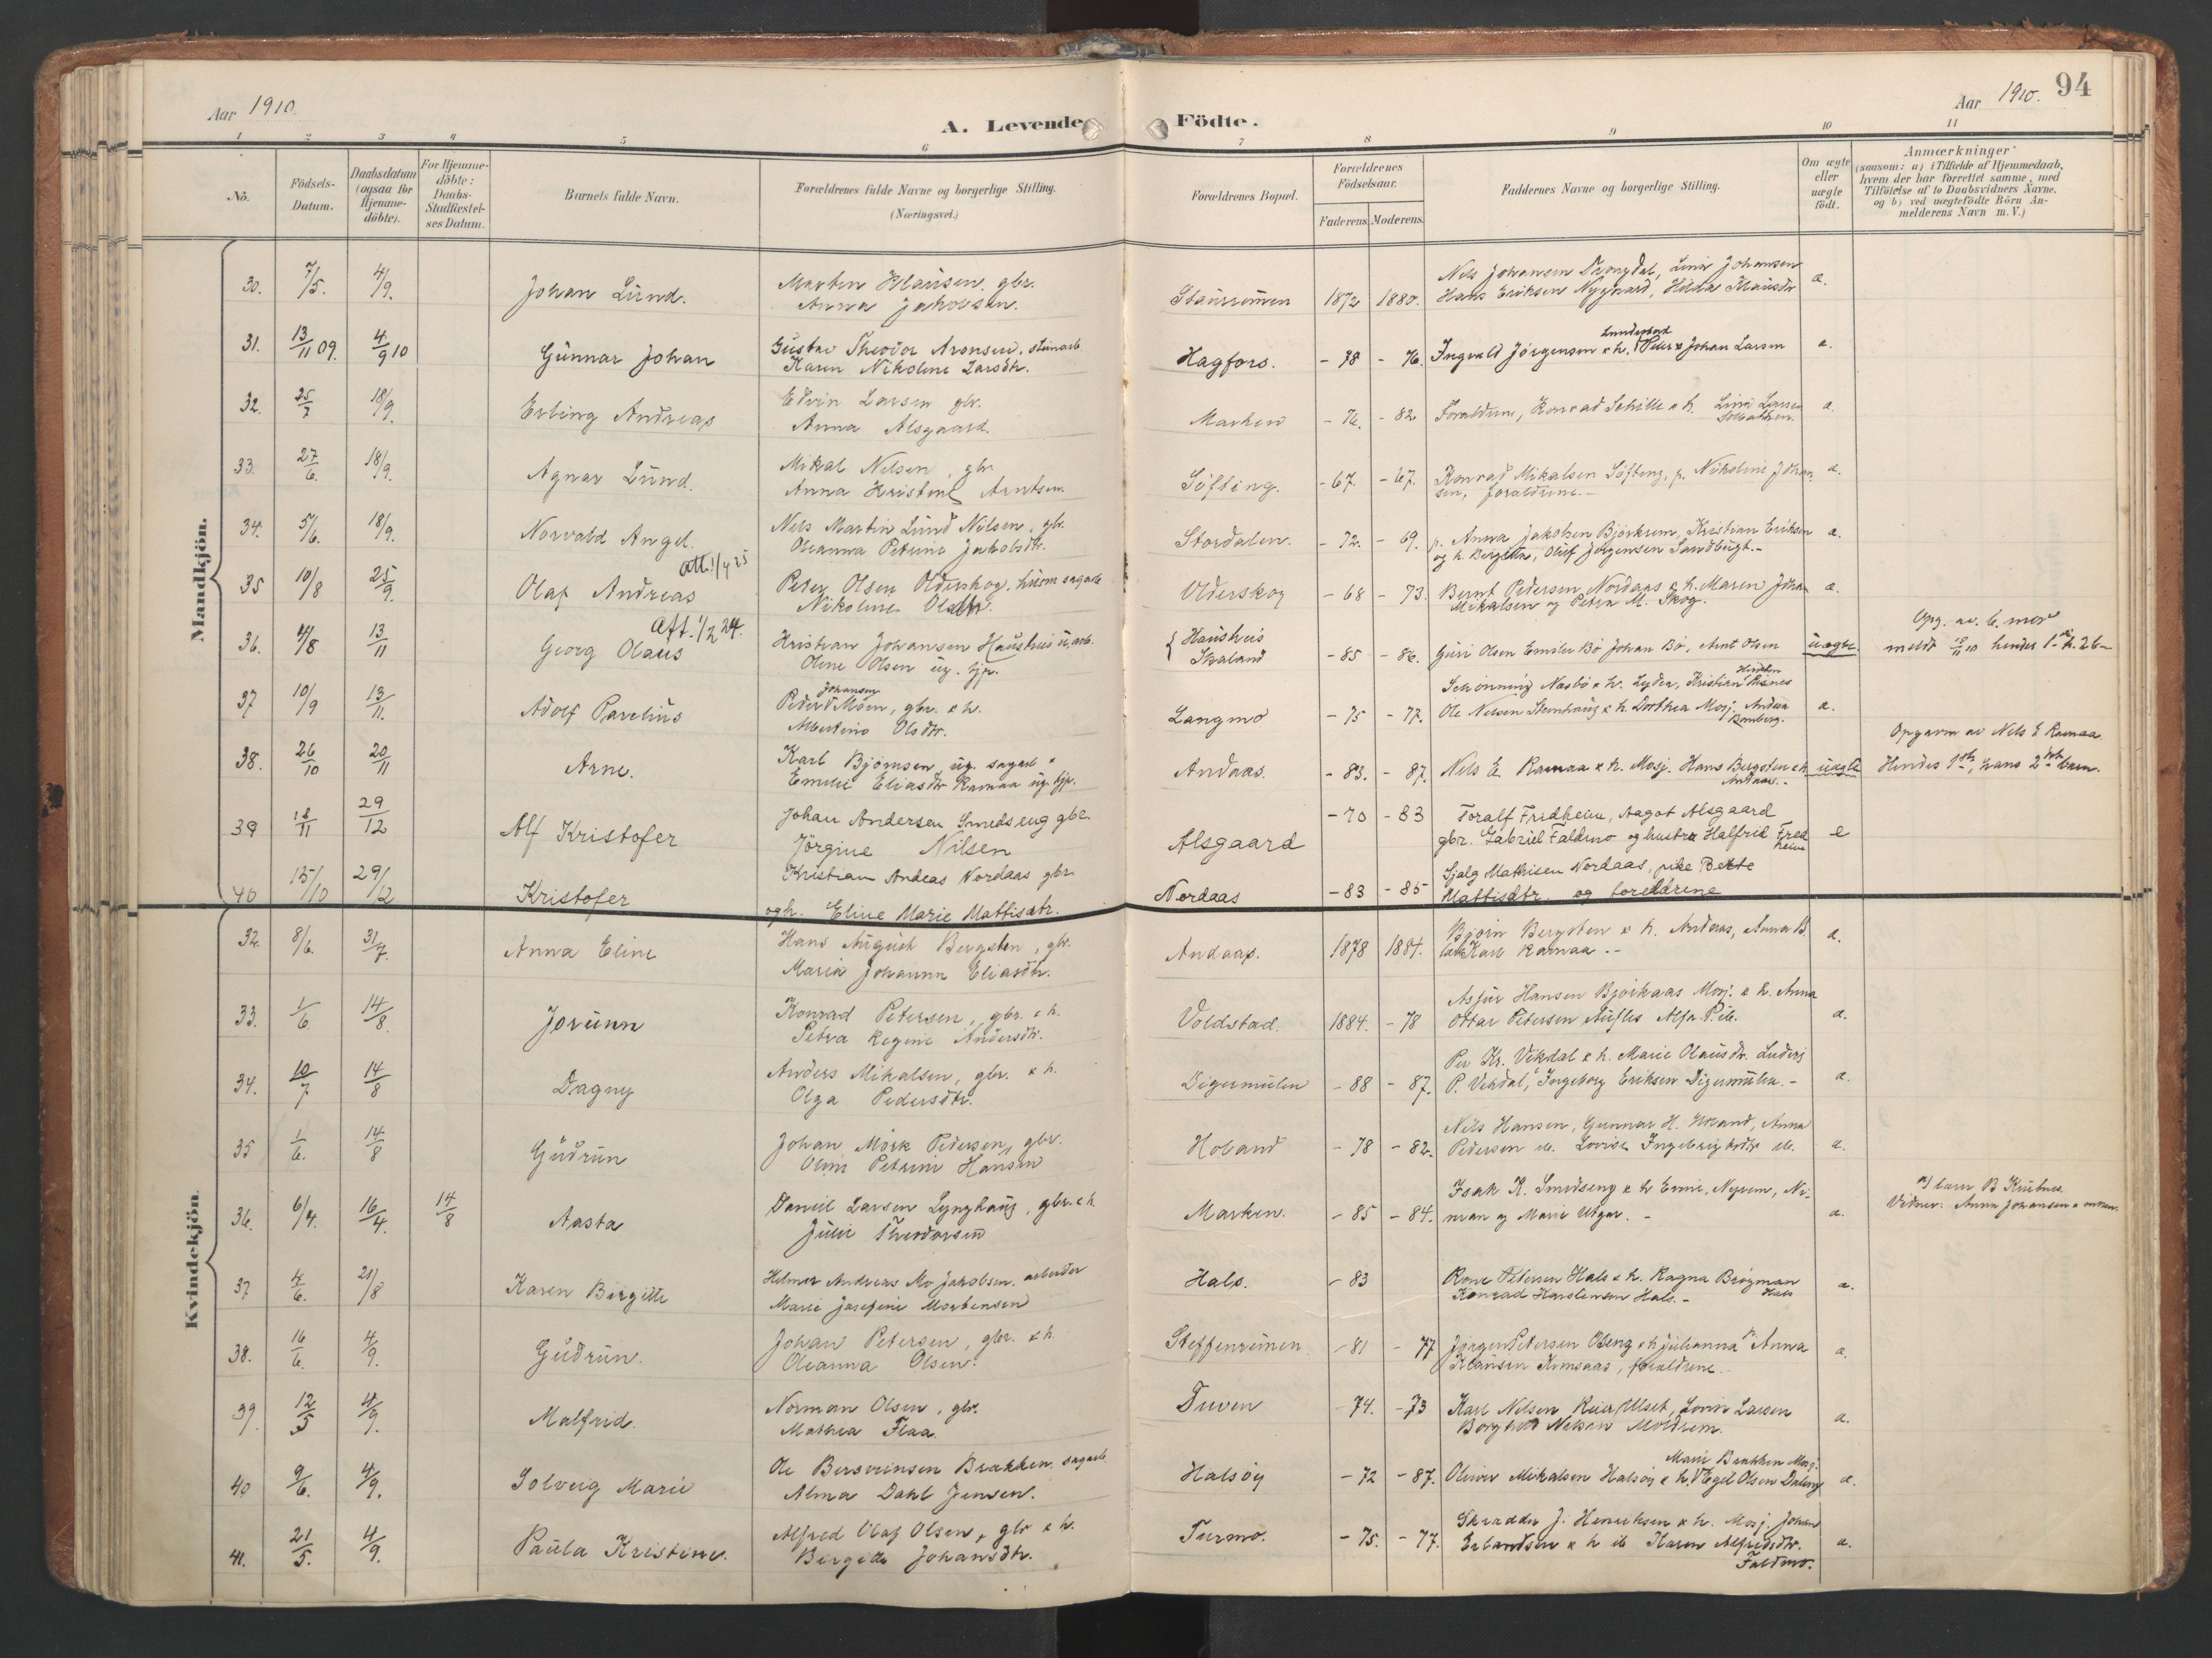 Aar 1910.
A. Levende Födte.
Aar 1910. 94
1 2 3 4 5 6 7 8 9 10 11
No.
Födsels-
Datum.
Daabsdatum
(ogsaa for
Hjemme-
döbte).
For Hjemme-
döbte:
Daabs-
Stadfæstel-
ses Datum.
Barnets fulde Navn.
Forældrenes fulde Navne og borgerlige Stilling.
(Næringsvei.)
Forældrenes Bopæl.
Forældrenes
Födselsaar.
Faderens. Moderens.
Faddernes Navne og borgerlige Stilling.
Om ægte
eller
uægte
födt.
Anmærkninger
(saasom: a) i Tilfælde af Hjemmedaab,
hvem der har forrettet samme, med
Tilföielse af to Daabsvidners Navne,
og b) ved uægtefödte Börn An-
melderens Navn m. V.)
Mandkjön.
30. 7/5. 4/9. Johan Lund. Marten Klausen. gbr.
Anna Jakobsen.
1872 1880. Nils Johansen Lina Johansen
Hans Eriksen Nygaard, Klausdr a.
31. 13/11 09. 4/9 10 Gunnar Johan Gustav Theodor Aronsen. stenarb
Karen Nikoline Larsdtr.
Hagfors. - 78 - 76. Ingvald Jörgensen & h. Peter & Johan Larsen a.
32. 25/7 18/9. Erling Andreas Edvin Larsen gbr.
Anna Alsgaard.
Marken - 76. - 82 Forældrene, Konrad & h. Lina Larsen a.
33. 27/6. 18/9. Agnar Lund. Mikal Nilsen, gbr
Anna Kristine Arntsen.
Söfting. - 67. - 67. Konrad Mikalsen Söfting, p. Nikoline Johan
sen, forældrene. - a.
34. 5/6. 18/9. Norvald Angel. Nils Martin Lund Nilsen, gbr.
Oleanna Petrine Jakobsdtr.
Stordalen. - 72. - 69. p. Anna Jakobsen Björkrem, Kristian Eriksen
og h. Bergitta, Oluf Jörgensen Sandbugt. - a.
35 10/8 25/9. Olaf Andreas att. 1/4 25 Peter Olsen Olderskog, husm sagarb
Nikoline Olsdtr.
Olderskog - 68 - 73. Bernt Pedersen Nordaas & h. Maren Johan
Mikalsen og Petra M. Skog. a.
36. 4/8 13/11 Georg Olaus Att. 1/2 24. Kristian Johansen Haushus u. arb.
Oline Olsen ug. tjp.
Haushus
Skaland - 85 - 86. Guri Olsen Emilie Bö Johan Bö, Arnt Olsen uægte
Opg. av b. mor
37 10/9 13/11. Adolf Parelius Peder Johansen Moen, gbr. & h.
Albertine Olsdtr.
Langmo - 75 - 77. Schönning Næsbö & h. Lyder, Kristian
Ole Nilsen Steinhaug & h. Dorthea Mosj. Andrea
Romberg. a.
38. 26/10 20/11 Arne. Karl Björnsen, ug. sagarb &
Emelie Eliasdtr Ramaa ug. tjp.
Andaas. - 83. - 87. Nils E. Ramaa & h. Mosj. Hans Bergsten & h
Andaas. - uægte
Opgavn av Nils E Ramaa.
Hendes 1ste, hans 2det barn.
39 18/11 29/12 Alf Kristofer Johan Andersen Smedseng gbr.
Jörgine Nilsen
Alsgaard - 70 - 83 Toralf Fredheim, Aagot Alsgaard
gbr. Gabriel Faldmo og hustru Halfrid Fred
heim e
40 15/10 29/12 Kristofer Kristian Andeas Nordaas gbr
ogh. Eline Marie Mattisdtr.
Nordaas - 83 - 85 Sjalg Mathisen Nordaas, pike Berte
Mattisdtr. og foreldrene
Kvindekjön.
32. 8/6. 31/7. Anna Eline Hans August Bergsten, gbr.
Maria Johanna Eliasdtr.
Andaas. 1878 1884. Björn Bergsten & h. Andaas, Anna B.
Karl Ramaa - a.
33. 1/6. 14/8. Jorunn Konrad Petersen, gbr. & h.
Petra Regine Andersdtr.
Voldstad. 1884. - 78 Asjur Hansen Björkaas Mosj. & h. Anna
Ottar Petersen Aufles a.
34. 10/7 14/8 Dagny Anders Mikalsen, gbr. & h.
Olga Pedersdtr.
Digermulen - 88 - 87. Per Kr. Vikdal & h. Marie Olausdtr.
P. Vikdal, Ingeborg Eriksen Digermulen. - a.
35 1/6. 14/8 Gudrun Johan Mörk Pedersen, gbr.
Oline Petrine Hansen
Holand - 78 - 82. Nils Hansen, Gunnar H. Holand, Anna
Pedersen ib. Lovise Ingebrigtsdtr ib. a.
36. 6/4. 16/4. 14/8 Aasta Daniel Larsen Lynghaug, gbr. & h.
Julie Theodorsen
Marken. - 85 - 84. Isak K. Smedseng & h Nyrem,
og Marie - a.
Vidner: Anna Johansen & moren.
37 4/6. 21/8 Karen Birgitte Hilmar Andreas Mo Jakobsen. arbeider
Marie Josefine Mortensen
Hals. - 83 Rone Petersen Hals & h. Ragna Brögman
Hals
Konrad Karstensen Hals. - a.
38. 16/6. 4/9. Gudrun. Johan Petersen, gbr. & h.
Oleanna Olsen.
Steffenremen. - 81 - 77 Jörgen Petersen & h Julianna p. Anna
Klausen forældrene. a.
39. 12/5 4/9. Malfrid. Norman Olsen, gbr.
Mathea Flaa.
Tuven - 74. - 73 Karl Nilsen, Ulset, Lovise Larsen
Borghild Nilsen a.
40 9/6. 4/9. Solveig Marie Ole Bersvensen Brækken. sagarb.
Alma Dahl Jensen.
Halsöy - 72 - 87. Marie Brækken Mosj.
Oliver Mikalsen Halsöy & h. Egil Olsen a.
41. 21/5. 4/9. Paula Kristine. Alfred Olaf Olsen, gbr & h.
Birgitte Johansdtr.
Turmo. - 75. - 77. Skrædder J. Henriksen & h. Mosj Johan
Erlandsen & h ib Karen Alfredsdtr.
Faldmo. a.